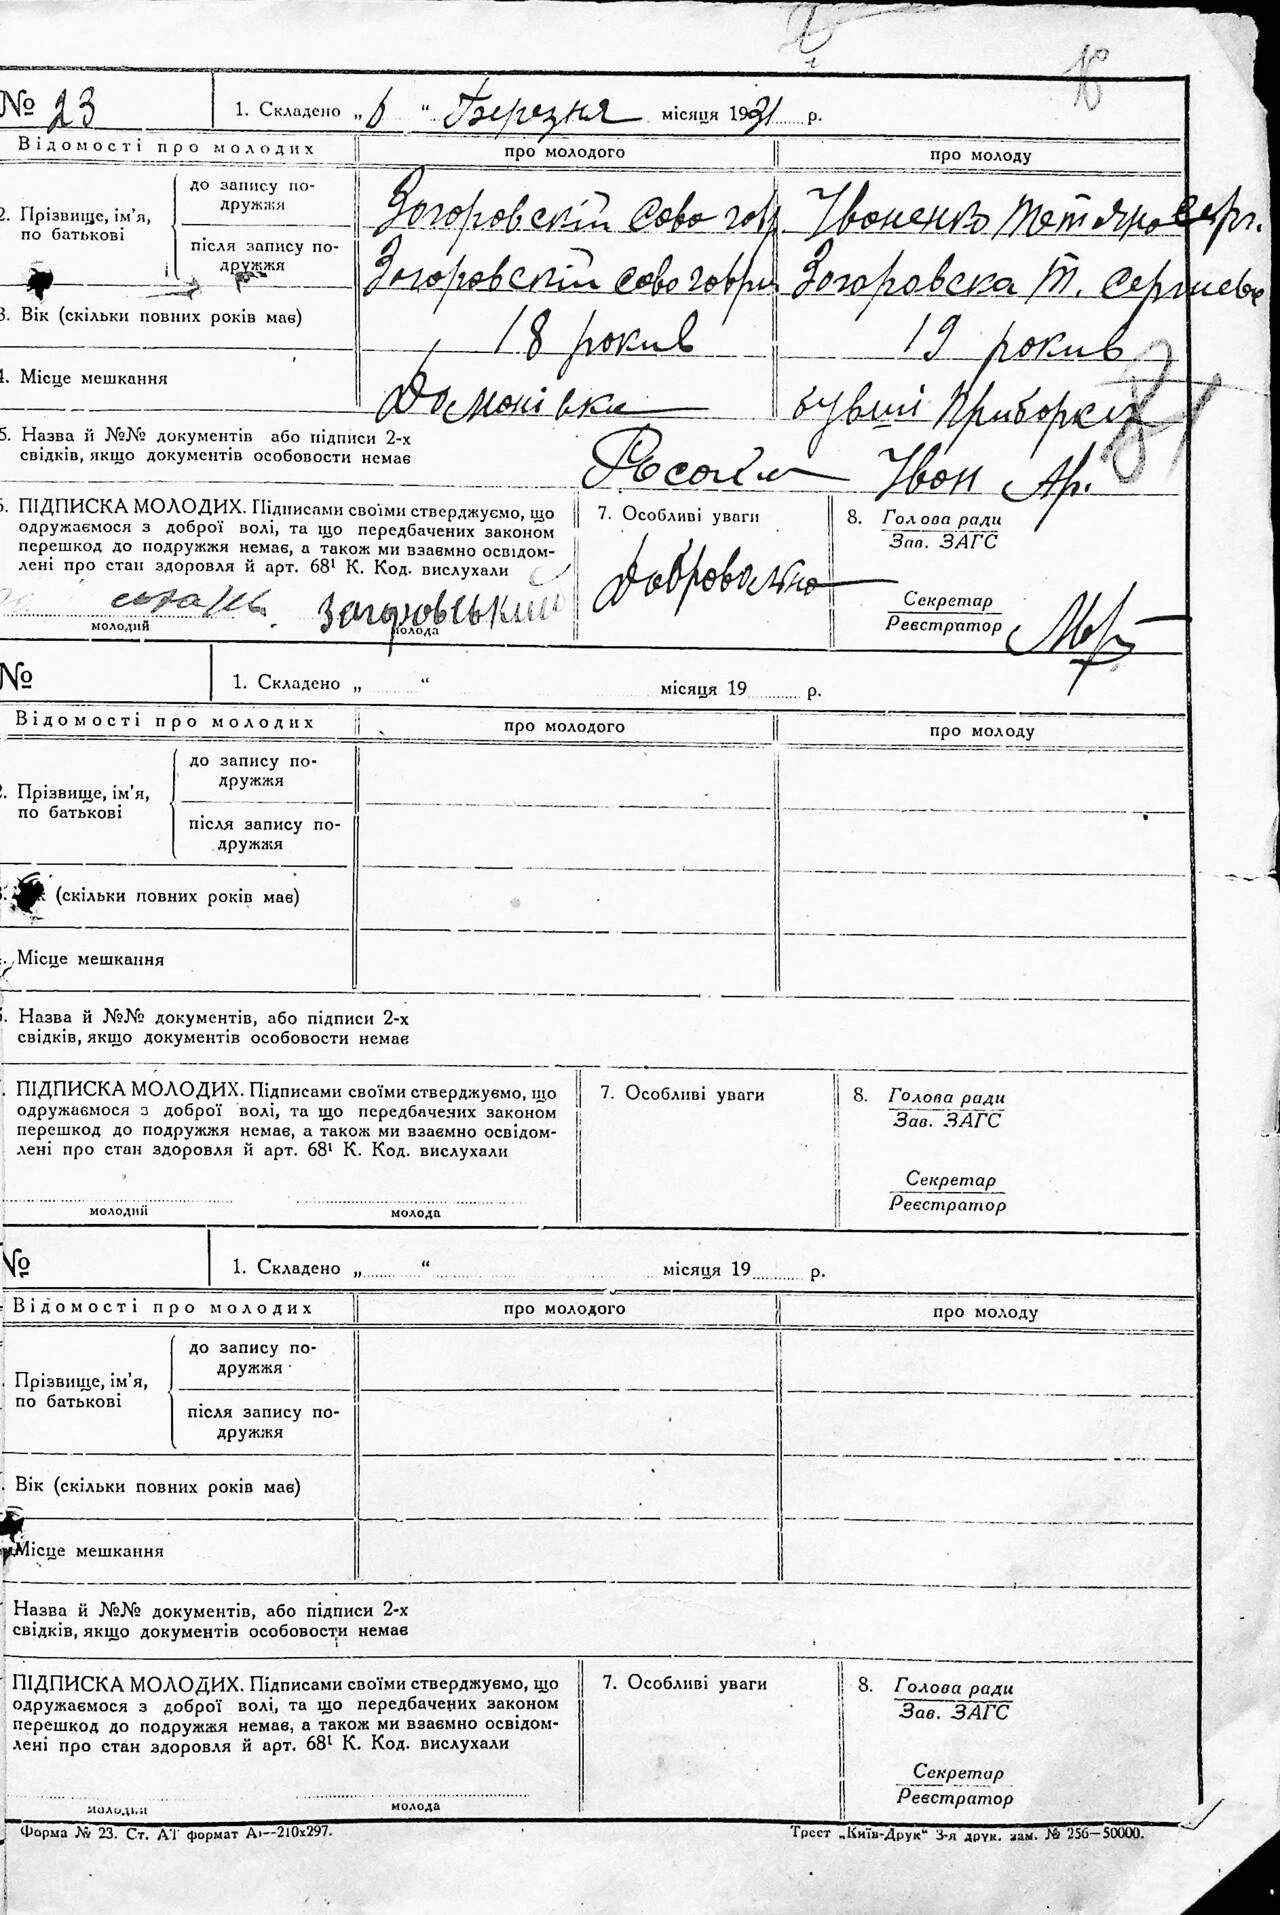 № 23 1. Складено „ 6 “ Березня місяця 1931 р.
Відомості про молодих про молодого про молоду
2. Прізвище, ім’я, по батькові
до запису по-
дружжя
Загоровскій Сава Гавр. Іваненко Тетяна Серг.
після запису по-
дружжя
Загоровскій Сава Гаври Загоровска Т. Сергиев
3. Вік (скільки повних років має) 18 рокив 19 рокив
4. Місце мешкання Домонівка бувші Приборки
5. Назва й №№ документів або підписи 2-х
свідків, якщо документів особовости немає
Іван Ар.
6. ПІДПИСКА МОЛОДИХ. Підписами своїми стверджуємо, що
одружаємося з доброї волі, та що передбачених законом
перешкод до подружжя немає, а також ми взаємно освідом-
лені про стан здоровля й арт. 68¹ К. Код. вислухали
Загоровський
молодий молода
7. Особливі уваги
Добровольно
8. Голова ради
Зав. ЗАГС
Секретар
Реєстратор
№ 1. Складено „ “ місяця 19 р.
Відомості про молодих про молодого про молоду
2. Прізвище, ім’я,
по батькові
до запису по-
дружжя
після запису по-
дружжя
(скільки повних років має)
Місце мешкання
Назва й №№ документів, або підписи 2-х
свідків, якщо документів особовости немає
ПІДПИСКА МОЛОДИХ. Підписами своїми стверджуємо, що
одружаємося з доброї волі, та що передбачених законом
перешкод до подружжя немає, а також ми взаємно освідом-
лені про стан здоровля й арт. 68¹ К. Код. вислухали
молодий молода
7. Особливі уваги
8. Голова ради
Зав. ЗАГС
Секретар
Реєстратор
№ 1. Складено „ “ місяця 19 р.
Відомості про молодих про молодого про молоду
Прізвище, ім’я,
по батькові
до запису по-
дружжя
після запису по-
дружжя
Вік (скільки повних років має)
Місце мешкання
Назва й №№ документів, або підписи 2-х
свідків, якщо документів особовости немає
ПІДПИСКА МОЛОДИХ. Підписами своїми стверджуємо, що
одружаємося з доброї волі, та що передбачених законом
перешкод до подружжя немає, а також ми взаємно освідом-
лені про стан здоровля й арт. 68¹ К. Код. вислухали
молодий молода
7. Особливі уваги
8. Голова ради
Зав. ЗАГС
Секретар
Реєстратор
Форма № 23. Ст. АТ формат А₁—210х297. Трест „Київ-Друк“ 3-я друк. зам. № 256—50000.